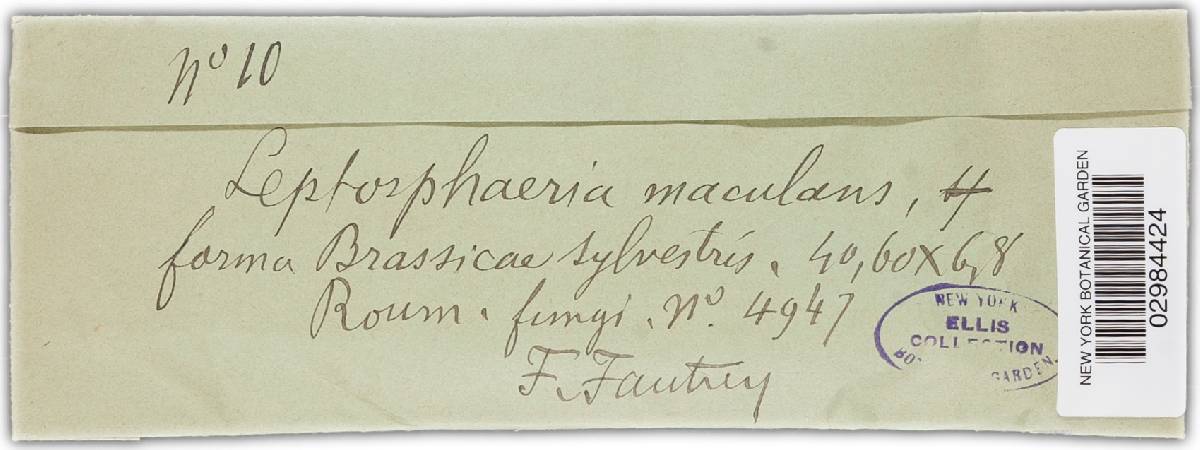 Nº 10
Leptosphaeria maculans,
forma Brassicae sylvestris. 40,60×6,8
Roum. fungi. Nº. 4947
F. Fautrey
NEW YORK
ELLIS
COLLECTION
GARDEN.
NEW YORK BOTANICAL GARDEN
02984424